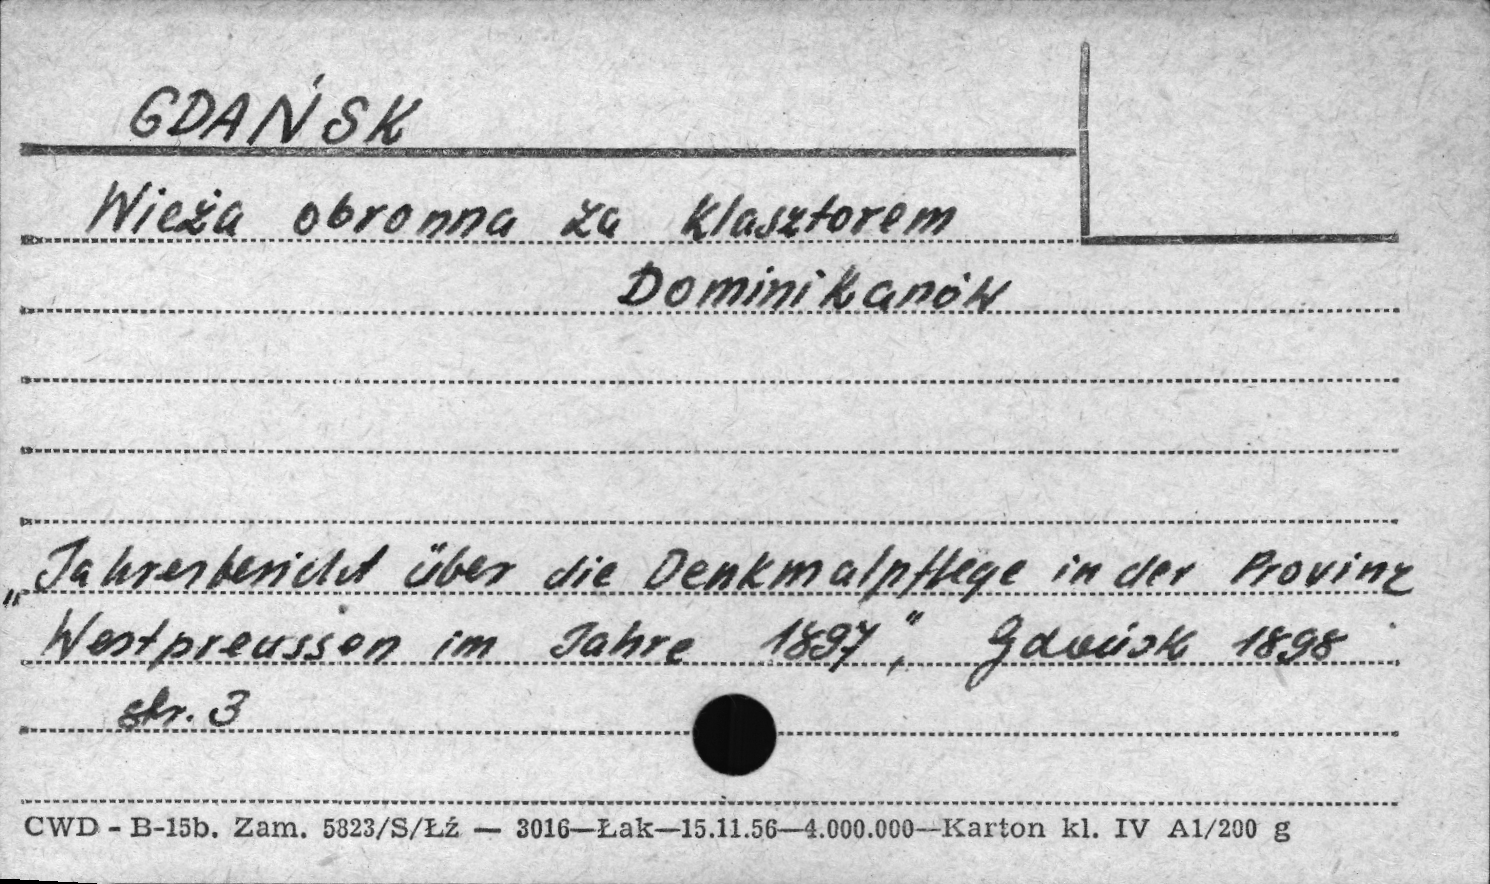 GDAŃSK
Wieża obronna za Klasztorem
Dominikanów
„Jahresbericht über die Denkmalpflege in der Provinz
Westpreussen im Jahre 1897", Gdańsk 1898
str. 3
CWD - B-15b. Zam. 5823/S/Łź — 3016—Łak—15.11.56—4.000.000—Karton kl. IV A1/200 g